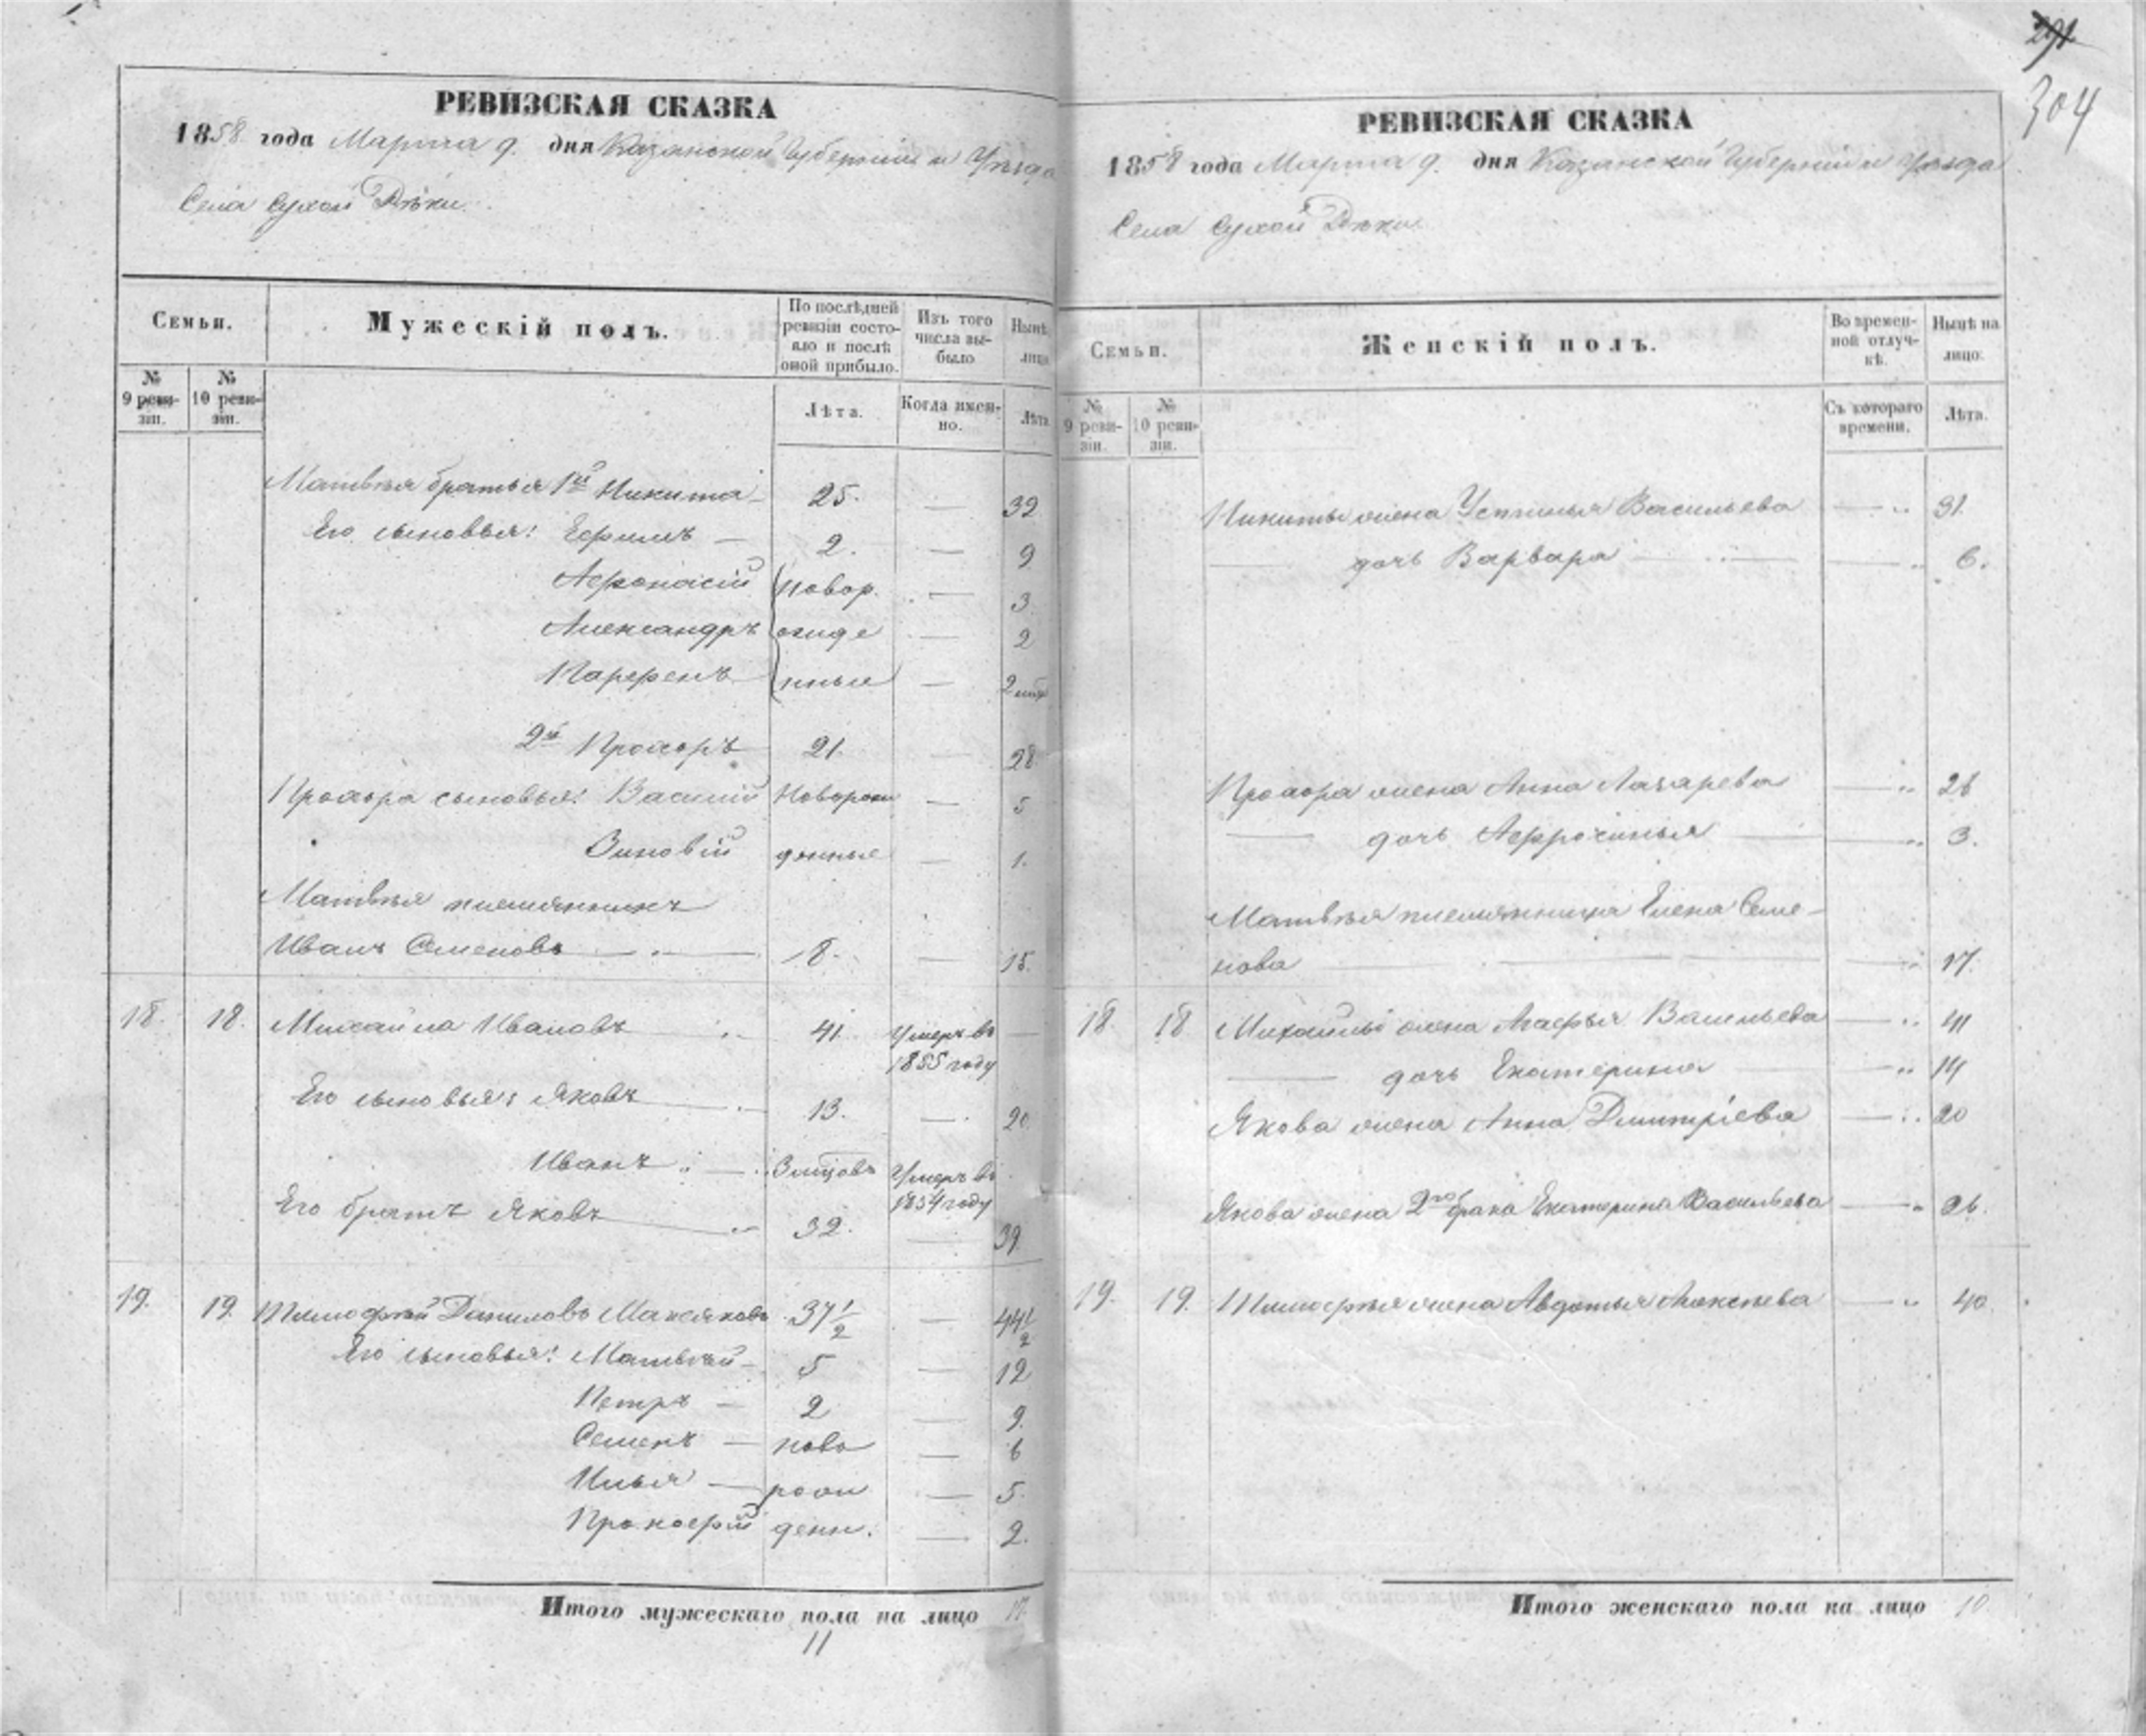 291
304
РЕВИЗСКАЯ СКАЗКА
1858 года Марта 9. дня Казанской Губерніи и Уѣзда
Села Сухой Рѣки.
Семьи.
Мужескій полъ.
По послѣдней ревизіи состо-
яло и послѣ оной прибыло.
Изъ того числа вы-
было
Нынѣ
лицо
№ 9 реви-
зіи.
№ 10 реви-
зіи.
Лѣта.
Когда имен-
но.
Лѣта
Матвѣя братья 1й Никита 25. — 32
Его сыновья: Ефимъ — 2. — 9
Афонасій новор. — 3
Александръ ожде — 2
Парфенъ нные — 2
2й Прохоръ 21. — 28
Прохора сыновья: Василій Новорож — 5
Зиновій денные — 1.
Матвѣя племянникъ
Иванъ Семеновъ — 8. — 15.
18. 18. Михайла Ивановъ 41. Умеръ въ —
1855 году
Его сыновья: Яковъ — 13. — 20
Иванъ — Умеръ въ
1854 году
Его братъ Яковъ — 32. — 39.
19. 19. Тимофѣй Даниловъ 37 1/2 — 44 1/2
Его сыновья: Матвѣй — 5 — 12
Петръ — 2 — 9.
Семенъ — ново — 6
Илья — рож — 5.
Прокофій денн. — 2.
Итого мужескаго пола на лицо 17.
11
РЕВИЗСКАЯ СКАЗКА
1858 года Марта 9. дня Казанской Губерніи и Уѣзда
Села Сухой Рѣки
Семьи.
Женскій полъ.
Во времен-
ной отлуч-
кѣ.
Нынѣ на
лицо.
№ 9 реви-
зіи.
№ 10 реви-
зіи.
Съ котораго
времени.
Лѣта.
Никиты жена Устинья Васильева — 31.
— дочь Варвара — 6.
Прохора жена Анна Лазарева — 26
— дочь Афросинья — 3.
Матвѣя племянница Елена Семе-
нова — 17.
18. 18 Михайлы жена Агафья Васильева — 41
— дочь Екатерина — 14
Якова жена Анна Дмитріева — 20
Якова жена 2го брака Екатерина Васильева — 26.
19. 19. Тимофѣя жена Авдотья Алексѣева — 40.
Итого женскаго пола на лицо 10.